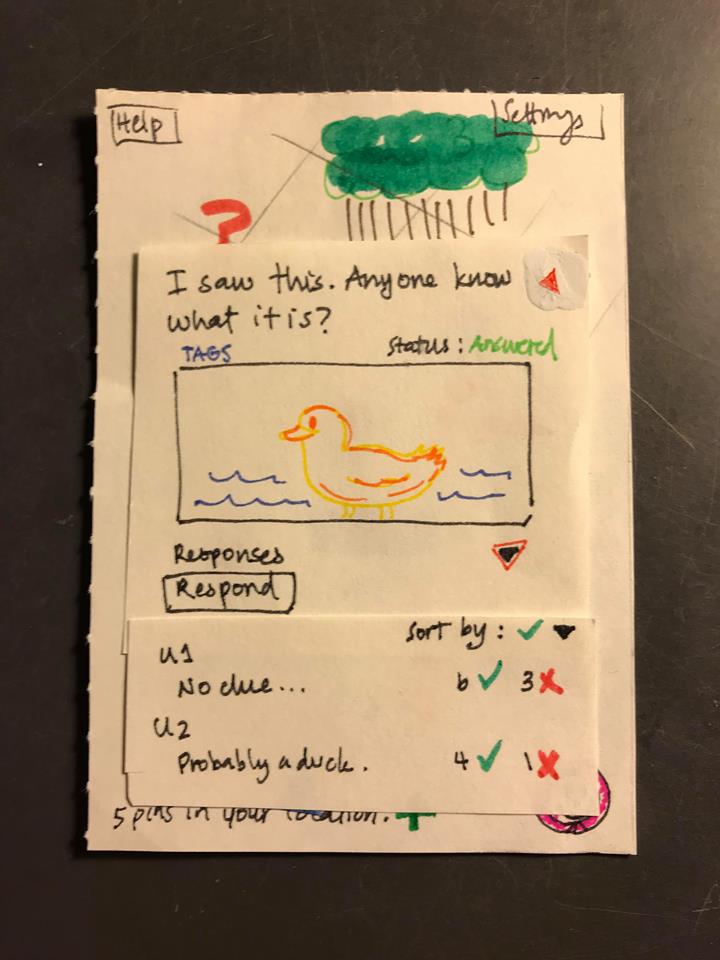 Help
Settings
?
I saw this. Anyone know
what it is?
TAGS
Status: Answered
Responses
Respond
Sort by: ✓
U1
No clue... 6 ✓ 3 ✗
U2
Probably a duck. 4 ✓ 1 ✗
5 pins in your location.